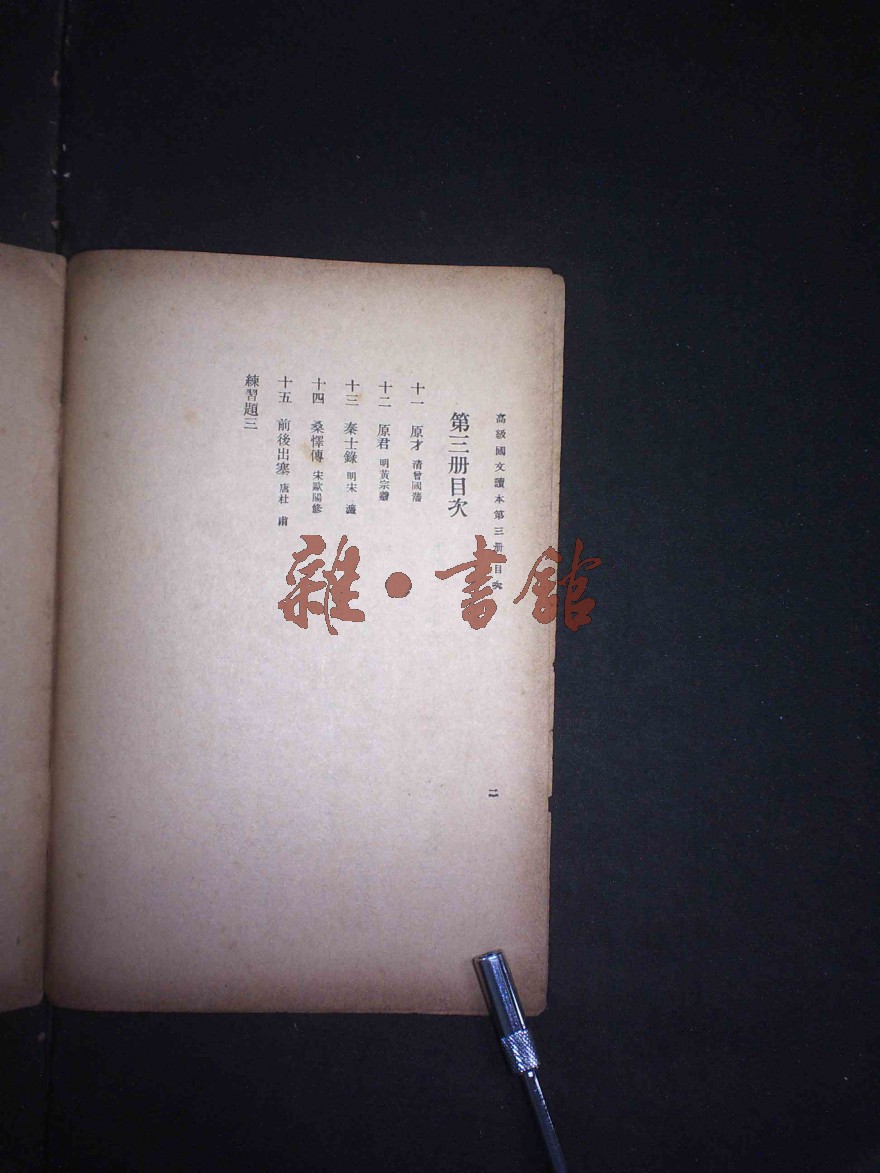 高級國文讀本第三册目次
二
第三册目次
十一 原才 清曾國藩
十二 原君 明黃宗羲
十三 秦士錄 明宋 濂
十四 桑懌傳 宋歐陽修
十五 前後出塞 唐杜 甫
練習題三
雜·書館